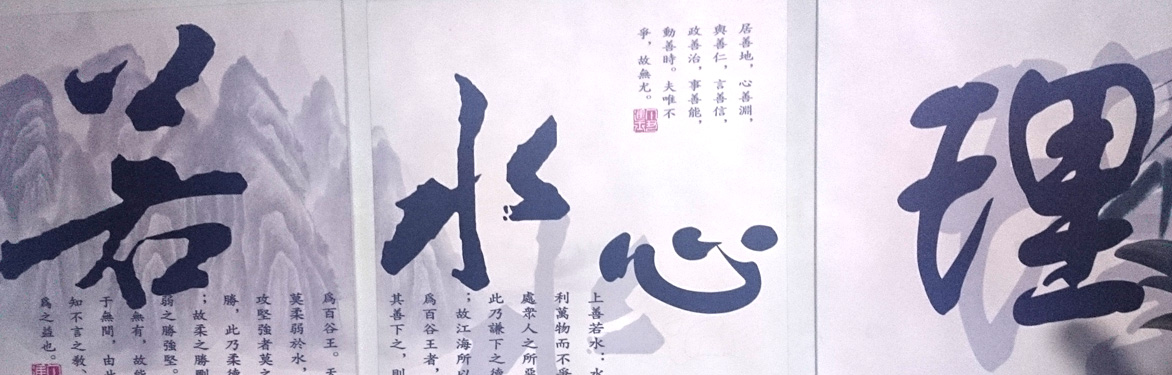 若水心理
居善地，心善淵，
與善仁，言善信，
政善治，事善能，
動善時。夫唯不
爭，故無尤。
上善若水：水
利萬物而不爭
處眾人之所惡
此乃謙下之德
；故江海所以
爲百谷王者，
其善下之，則
爲百谷王。天
莫柔弱於水，
攻堅強者莫之
勝，此乃柔德
；故柔之勝剛
弱之勝強堅。
無有，故能
于無間，由此
知不言之教、
爲之益也。